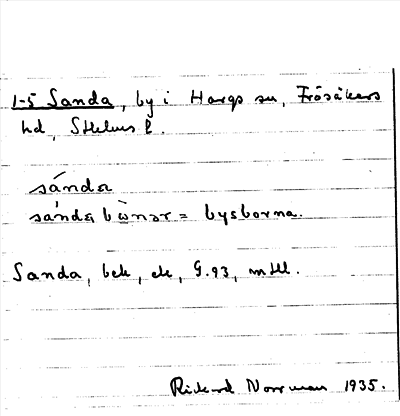 1-5 Sanda, by i Hargs sn, Frösåkers
hd, Sthlms l.
sánda
sánda bònər = bysborna.
Sanda, bek, ek, G.93, mtl.
Rickard Norrman 1935.